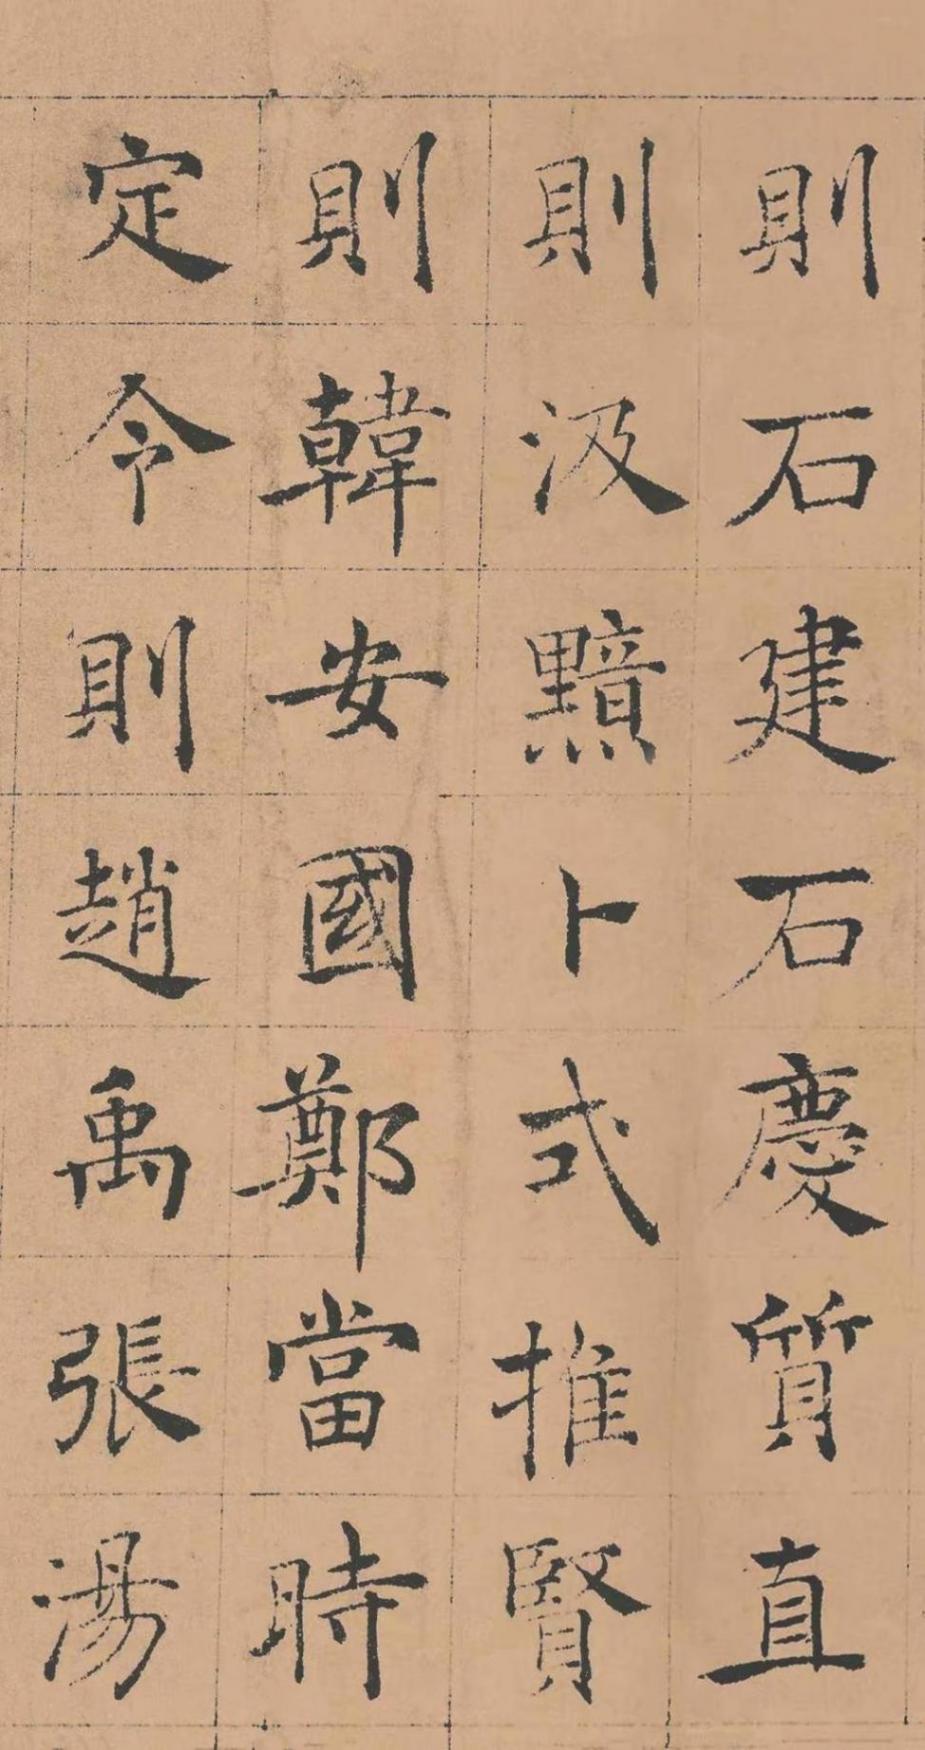 則石建石慶質直
則汲黯卜式推賢
則韓安國鄭當時
定令則趙禹張湯